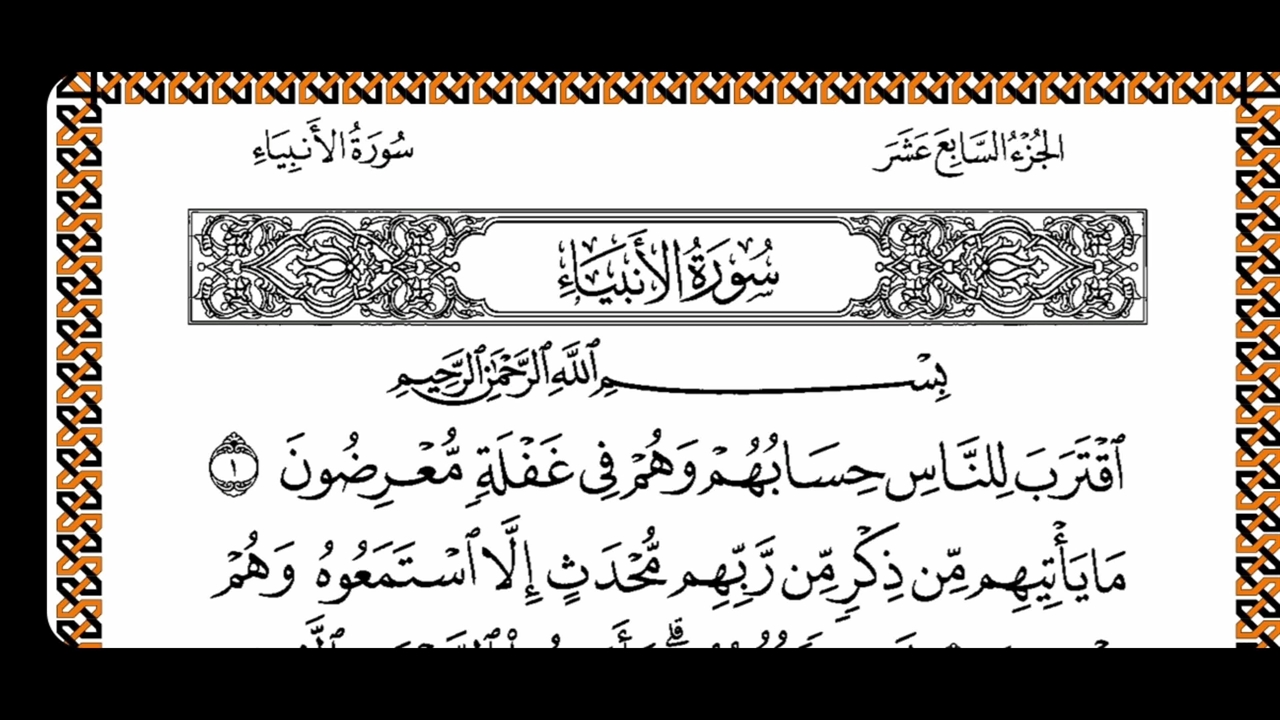 الجُزْءُ السَّابِعَ عَشَرَ
سُورَةُ الأَنبِيَاءِ
سُورَةُ الأَنبِيَاءِ
بِسْمِ ٱللَّهِ ٱلرَّحْمَٰنِ ٱلرَّحِيمِ
ٱقْتَرَبَ لِلنَّاسِ حِسَابُهُمْ وَهُمْ فِى غَفْلَةٍ مُّعْرِضُونَ ١
مَا يَأْتِيهِم مِّن ذِكْرٍ مِّن رَّبِّهِم مُّحْدَثٍ إِلَّا ٱسْتَمَعُوهُ وَهُمْ